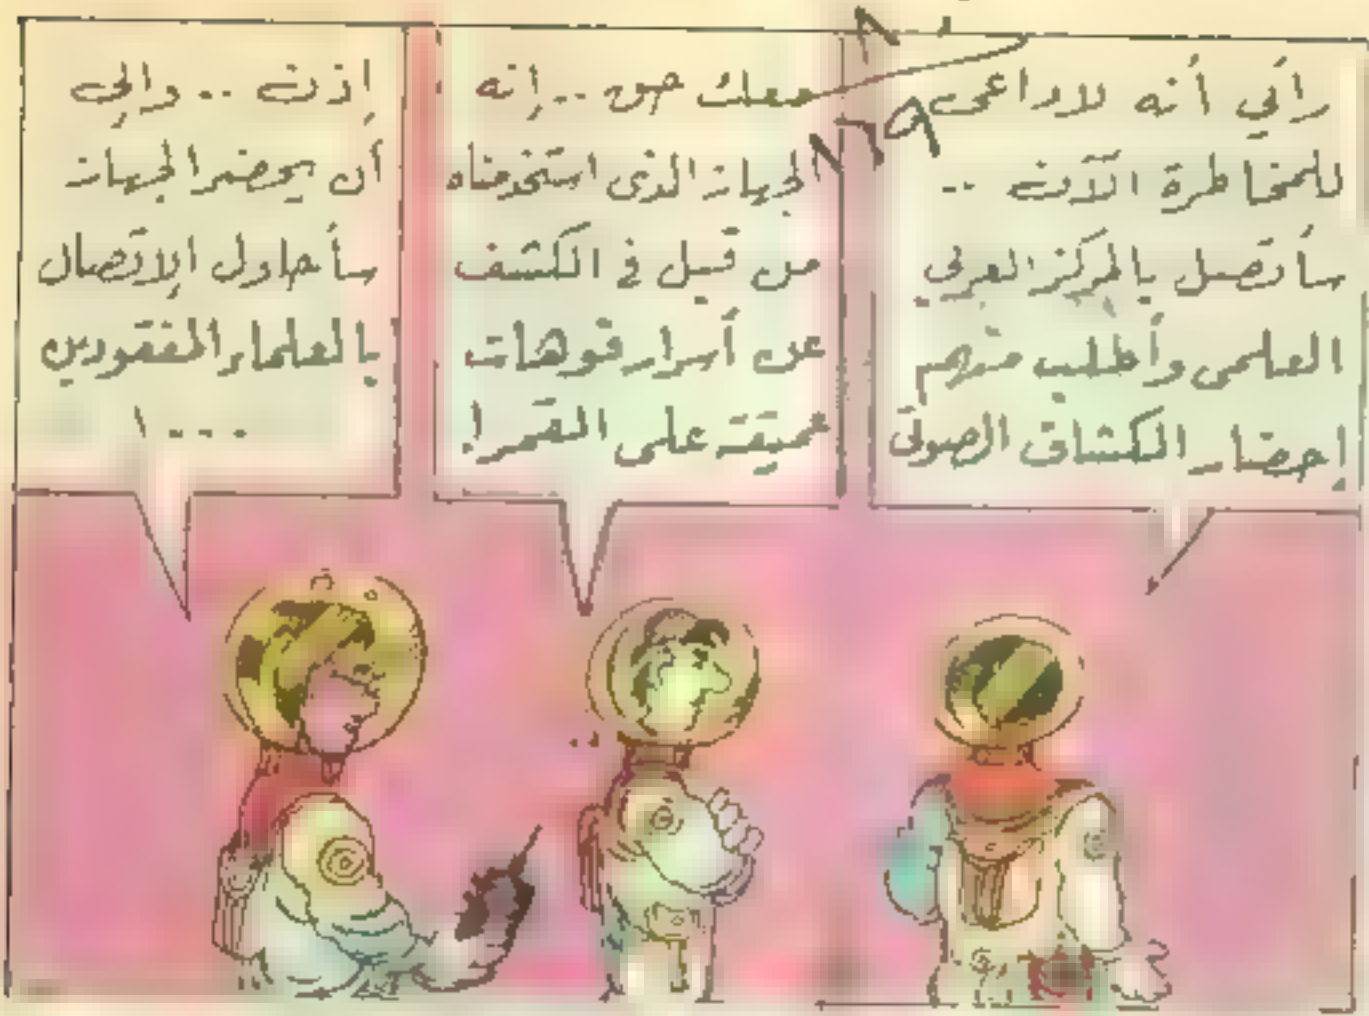 رأيي أنه لا داعى
للمخاطرة الآن ..
سأتصل بالمركز العربي
العلمى وأطلب منهم
إحضار الكشاف الصوتى
معك حق .. إنه
الجهاز الذى استخدمناه
من قبل فى الكشف
عن أسرار فوهات
عميقة على القمر!
إذن .. وإلى
أن يحضر الجهاز
سأحاول الإتصال
بالعلماء المفقودين
....!